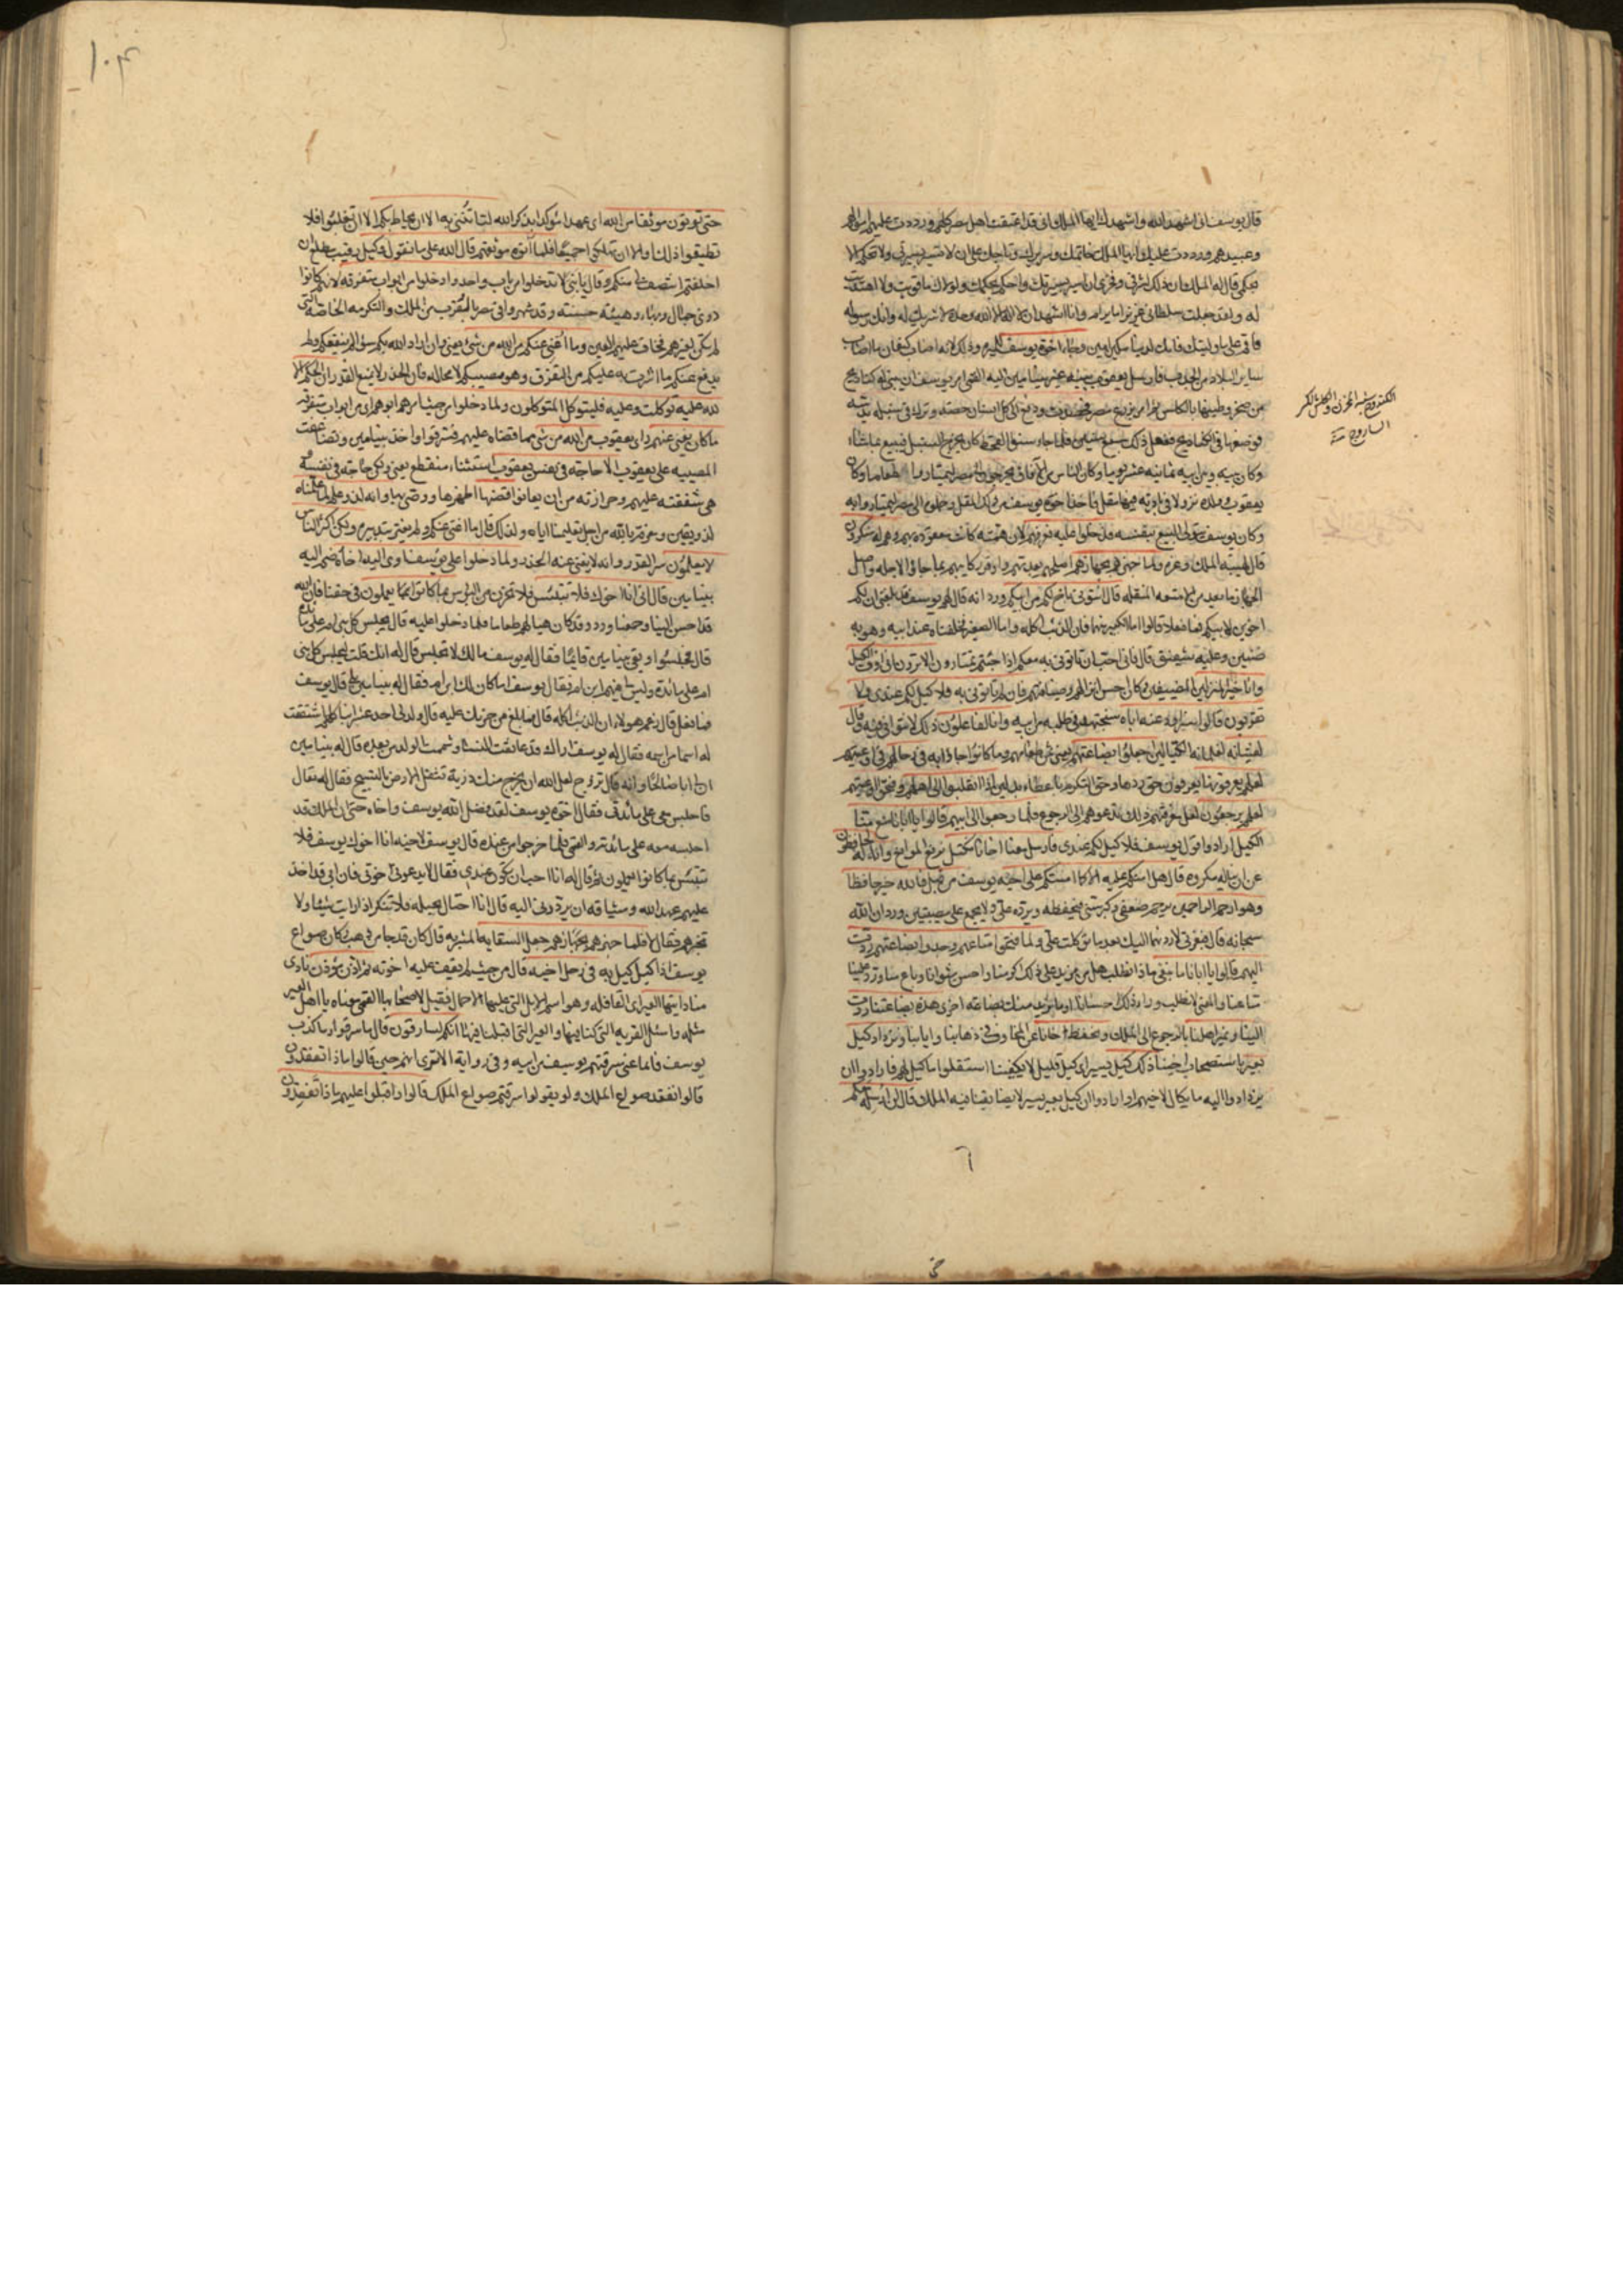 قال يوسف اني اشهد الله واشهدك ايها الملك اني قد اعتقت اهل مصر كلهم ورددت عليهم اموالهم
وعبيدهم ورددت عليك ايها الملك خاتمك وسريرك وتاجك على ان لا تسير الا بسيرتي ولا تحكم الا
بحكمي قال له الملك ان ذلك لشرفي وفخري ان اسير بسيرتك واحكم بحكمك ولولاك ما قويت ولا اهتديت
له ولقد جعلت سلطاني عزيزا ما يرام وانا اشهد ان لا اله الا الله وحده لا شريك له وانك رسوله
فاقم على ما وليتك فانك لدينا مكين امين وجاء اخوة يوسف للميرة وذلك لانه اصاب كنعان ما اصاب
ساير البلاد من الجدب فارسل يعقوب بنيه غير بنيامين اليه القمي امر يوسف ان يبنى له كناديج
من صخر وطينها بالكلس ثم امر بزروع مصر فحصدت ودفع الى كل انسان حصته وترك في سنبله لم يدسه
فوضعها في الكناديج ففعل ذلك سبع سنين فلما جاء سنو القحط كان يخرج السنبل فيبيع بما شاء
وكان بينه وبين ابيه ثمانية عشر يوما وكان الناس من الآفاق يخرجون الى مصر ليمتاروا طعاما وكان
يعقوب وولده نزولا في بادية فيها مقل فاخذ اخوة يوسف من ذلك المقل وحملوه الى مصر ليمتاروا به
وكان يوسف يتولى البيع بنفسه فدخلوا عليه فعرفهم لان همته كانت معقودة بهم وهم له منكرون
قال لهيبة الملك وعزه ولما جهزهم بجهازهم اصلحهم بعدتهم واوقر ركايبهم بما جاؤا لاجله واصل
الجهاز ما يعد من الامتعة للنقلة قال ائتوني باخ لكم من ابيكم ورد انه قال لهم يوسف قد بلغني ان لكم
اخوين لابيكم فما فعلا قالوا اما الكبير منهما فان الذئب اكله واما الصغير فخلفناه عند ابيه وهو به
ضنين وعليه شفيق قال فاني احب ان تاتوني به معكم اذا جئتم تمتارون الا ترون اني اوف الكيل
وانا خير المنزلين المضيفين وكان احسن انزالهم وضيافتهم فان لم تاتوني به فلا كيل لكم عندي ولا
تقربون قالوا سنراود عنه اباه سنجتهد في طلبه من ابيه وانا لفاعلون ذلك لا نتوانى فيه وقال
لفتيانه لغلمانه الكيالين اجعلوا بضاعتهم يعني ثمن طعامهم وما كانوا جاؤا به في رحالهم في اوعيتهم
لعلهم يعرفونها يعرفون حق ردها وحق التكرم باعطاء بدلين اذا انقلبوا الى اهلهم وفتحوا اوعيتهم
لعلهم يرجعون لعل معرفتهم ذلك تدعوهم الى الرجوع فلما رجعوا الى ابيهم قالوا يا ابانا منع منا
الكيل ارادوا قول يوسف فلا كيل لكم عندي فارسل معنا اخانا نكتل نرفع الموانع وانا له لحافظون
عن ان يناله مكروه قال هل امنكم عليه الا كما امنتكم على اخيه يوسف من قبل فالله خير حافظا
وهو ارحم الراحمين يرحم ضعفي وكبر سني فيحفظه ويرده علي ولا يجمع علي مصيبتين ورد ان الله
سبحانه قال فبعزتي لاردنهما اليك بعد ما توكلت علي ولما فتحوا متاعهم وجدوا بضاعتهم ردت
اليهم قالوا يا ابانا ما نبغي ماذا نطلب هل من مزيد على ذلك اكرمنا واحسن مثوانا وباع منا ورد علينا
متاعنا والمعنى لا نطلب وراء ذلك احسانا او ما نريد منك بضاعة اخرى هذه بضاعتنا ردت
الينا ونمير اهلنا بالرجوع الى الملك ونحفظ اخانا عن المخاوف في ذهابنا وايابنا ونزداد كيل
بعير باستصحاب اخينا ذلك كيل يسير اي كيل قليل لا يكفينا استقلوا ما كيل لهم فارادوا ان
يزدادوا اليه ما يكال لاخيهم او ارادوا ان كيل بعير يسير لا يضايقنا فيه الملك قال لن ارسله معكم
حتى تؤتون موثقا من الله اي عهدا مؤكدا بذكر الله لتاتنني به الا ان يحاط بكم الا ان تغلبوا فلا
تطيقوا ذلك او الا ان تهلكوا جميعا فلما آتوه موثقهم قال الله على ما نقول وكيل رقيب مطلع ان
اخلفتم انتصف لي منكم وقال يا بني لا تدخلوا من باب واحد وادخلوا من ابواب متفرقة لانهم كانوا
ذوي جمال وبهاء وهيئة حسنة وقد شهروا في مصر بالقرب من الملك والتكرمة الخاصة التي
لم تكن لغيرهم فخاف عليهم العين وما اغني عنكم من الله من شيء يعني وان اراد الله بكم سوءا لم ينفعكم ولم
يدفع عنكم ما اشرت به عليكم من التفرق وهو مصيبكم لا محالة فان الحذر لا يمنع القدر ان الحكم الا
لله عليه توكلت وعليه فليتوكل المتوكلون ولما دخلوا من حيث امرهم ابوهم اي من ابواب متفرقة
ما كان يغني عنهم راي يعقوب من الله من شيء مما قضاه عليهم فسرقوا واخذ بنيامين وتضاعفت
المصيبة على يعقوب الا حاجة في نفس يعقوب استثناء منقطع يعني ولكن حاجة في نفسه
هي شفقته عليهم وحرازته من ان يعانوا قضيها اظهرها ووصى بها وانه لذو علم لما علمناه
لذو يقين ومعرفة بالله من اجل تعليمنا اياه ولذلك قال ما اغني عنكم ولم يغتر بتدبيره ولكن اكثر الناس
لا يعلمون سر القدر وانه لا يغني عنه الحذر ولما دخلوا على يوسف اوى اليه اخاه ضم اليه
بنيامين قال اني انا اخوك فلا تبتئس فلا تحزن من البؤس بما كانوا يعملون في حقنا فان الله
قد احسن الينا وجمعنا ورد وقد كان هيأ لهم طعاما فلما دخلوا عليه قال ليجلس كل بني ام على مائدة
قال فجلسوا وبقي بنيامين قايما فقال له يوسف مالك لا تجلس قال له انك قلت ليجلس كل بني
ام على مائدة وليس لي فيهم ابن ام فقال يوسف اما كان لك ابن ام فقال له بنيامين بلى قال يوسف
فما فعل قال زعم هؤلاء ان الذئب اكله قال فما بلغ من حزنك عليه قال ولد لي احد عشر ابنا كلهم اشتققت
له اسما من اسمه فقال له يوسف اراك قد عانقت النساء وشممت الولد من بعده قال له بنيامين
ان لي ابا صالحا وانه قال تزوج لعل الله ان يخرج منك ذرية تثقل الارض بالتسبيح فقال له تعال
فاجلس معي على مائدتي فقال اخوة يوسف لقد فضل الله يوسف واخاه حتى ان الملك قد
اجلسه معه على مائدته والقمي فلما خرجوا من عنده قال يوسف لاخيه انا اخوك يوسف فلا
تبتئس بما كانوا يعملون ثم قال له انا احب ان تكون عندي فقال لا يدعوني اخوتي فان ابي قد اخذ
عليهم عهد الله وميثاقه ان يردوني اليه قال انا احتال بحيلة فلا تنكر اذا رايت شيئا ولا
تخبرهم فقال لا فلما جهزهم بجهازهم جعل السقاية المشربة قال كان قدحا من ذهب وكان صواع
يوسف اذا كيل كيل به في رحل اخيه قال من حيث لم يقف عليه اخوته ثم اذن مؤذن نادى
مناد ايتها العير اي القافلة وهو اسم الابل التي عليها الاحمال فقيل لاصحابها القمي معناه يا اهل العير
مثله واسئل القرية التي كنا فيها والعير التي اقبلنا فيها انكم لسارقون قال ما سرقوا وما كذب
يوسف فانما عنى سرقتم يوسف من ابيه وفي رواية الا ترى انهم حين قالوا ماذا تفقدون
قالوا نفقد صواع الملك ولم يقولوا سرقتم صواع الملك قالوا واقبلوا عليهم ماذا تفقدون